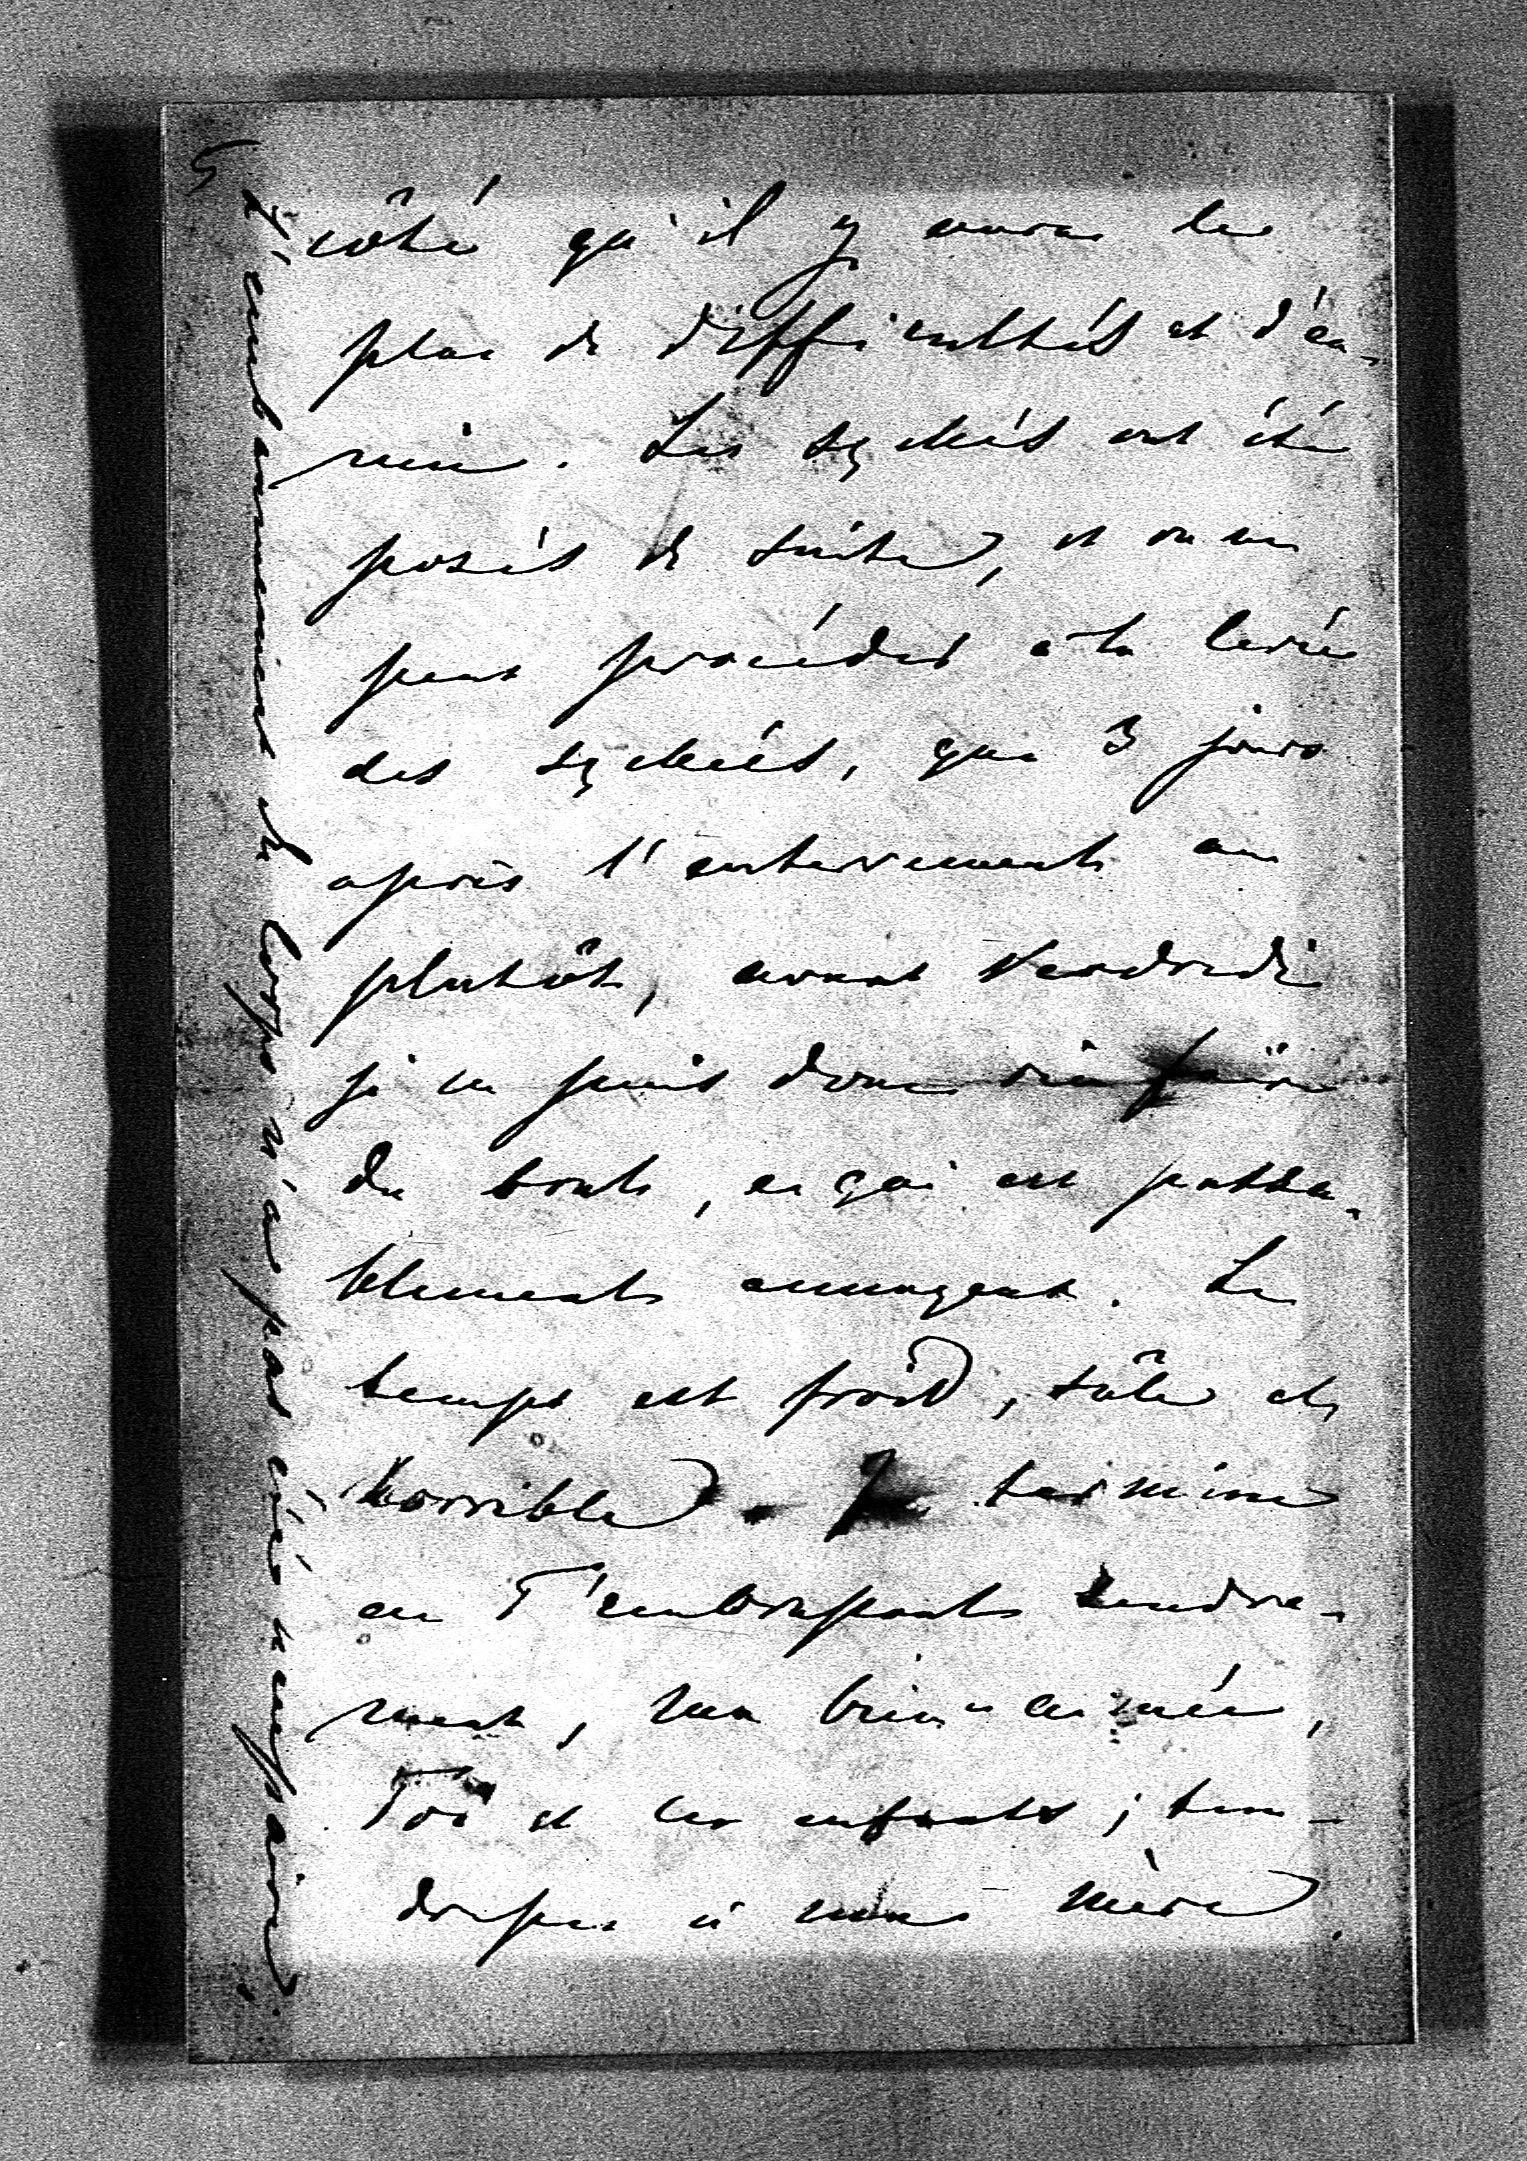 5
côté qu'il y aura le
plus de difficultés et d'en-
nui. Les scellés ont été
posés de suite, et on ne
peut procéder à la levée
des scellés, que 3 jours
après l'enterrement au
plutôt, avant Vendredi
je ne puis donc rien faire
du tout, ce qui est passa-
blement enrageant. Le
temps est froid, sâle et
horrible. Je termine
en T'embrassant tendre-
ment, ma bien-aimée,
Toi et les enfants; ten-
dresses à mon mère.
L'embaumement du corps n'a pas été nécessaire.